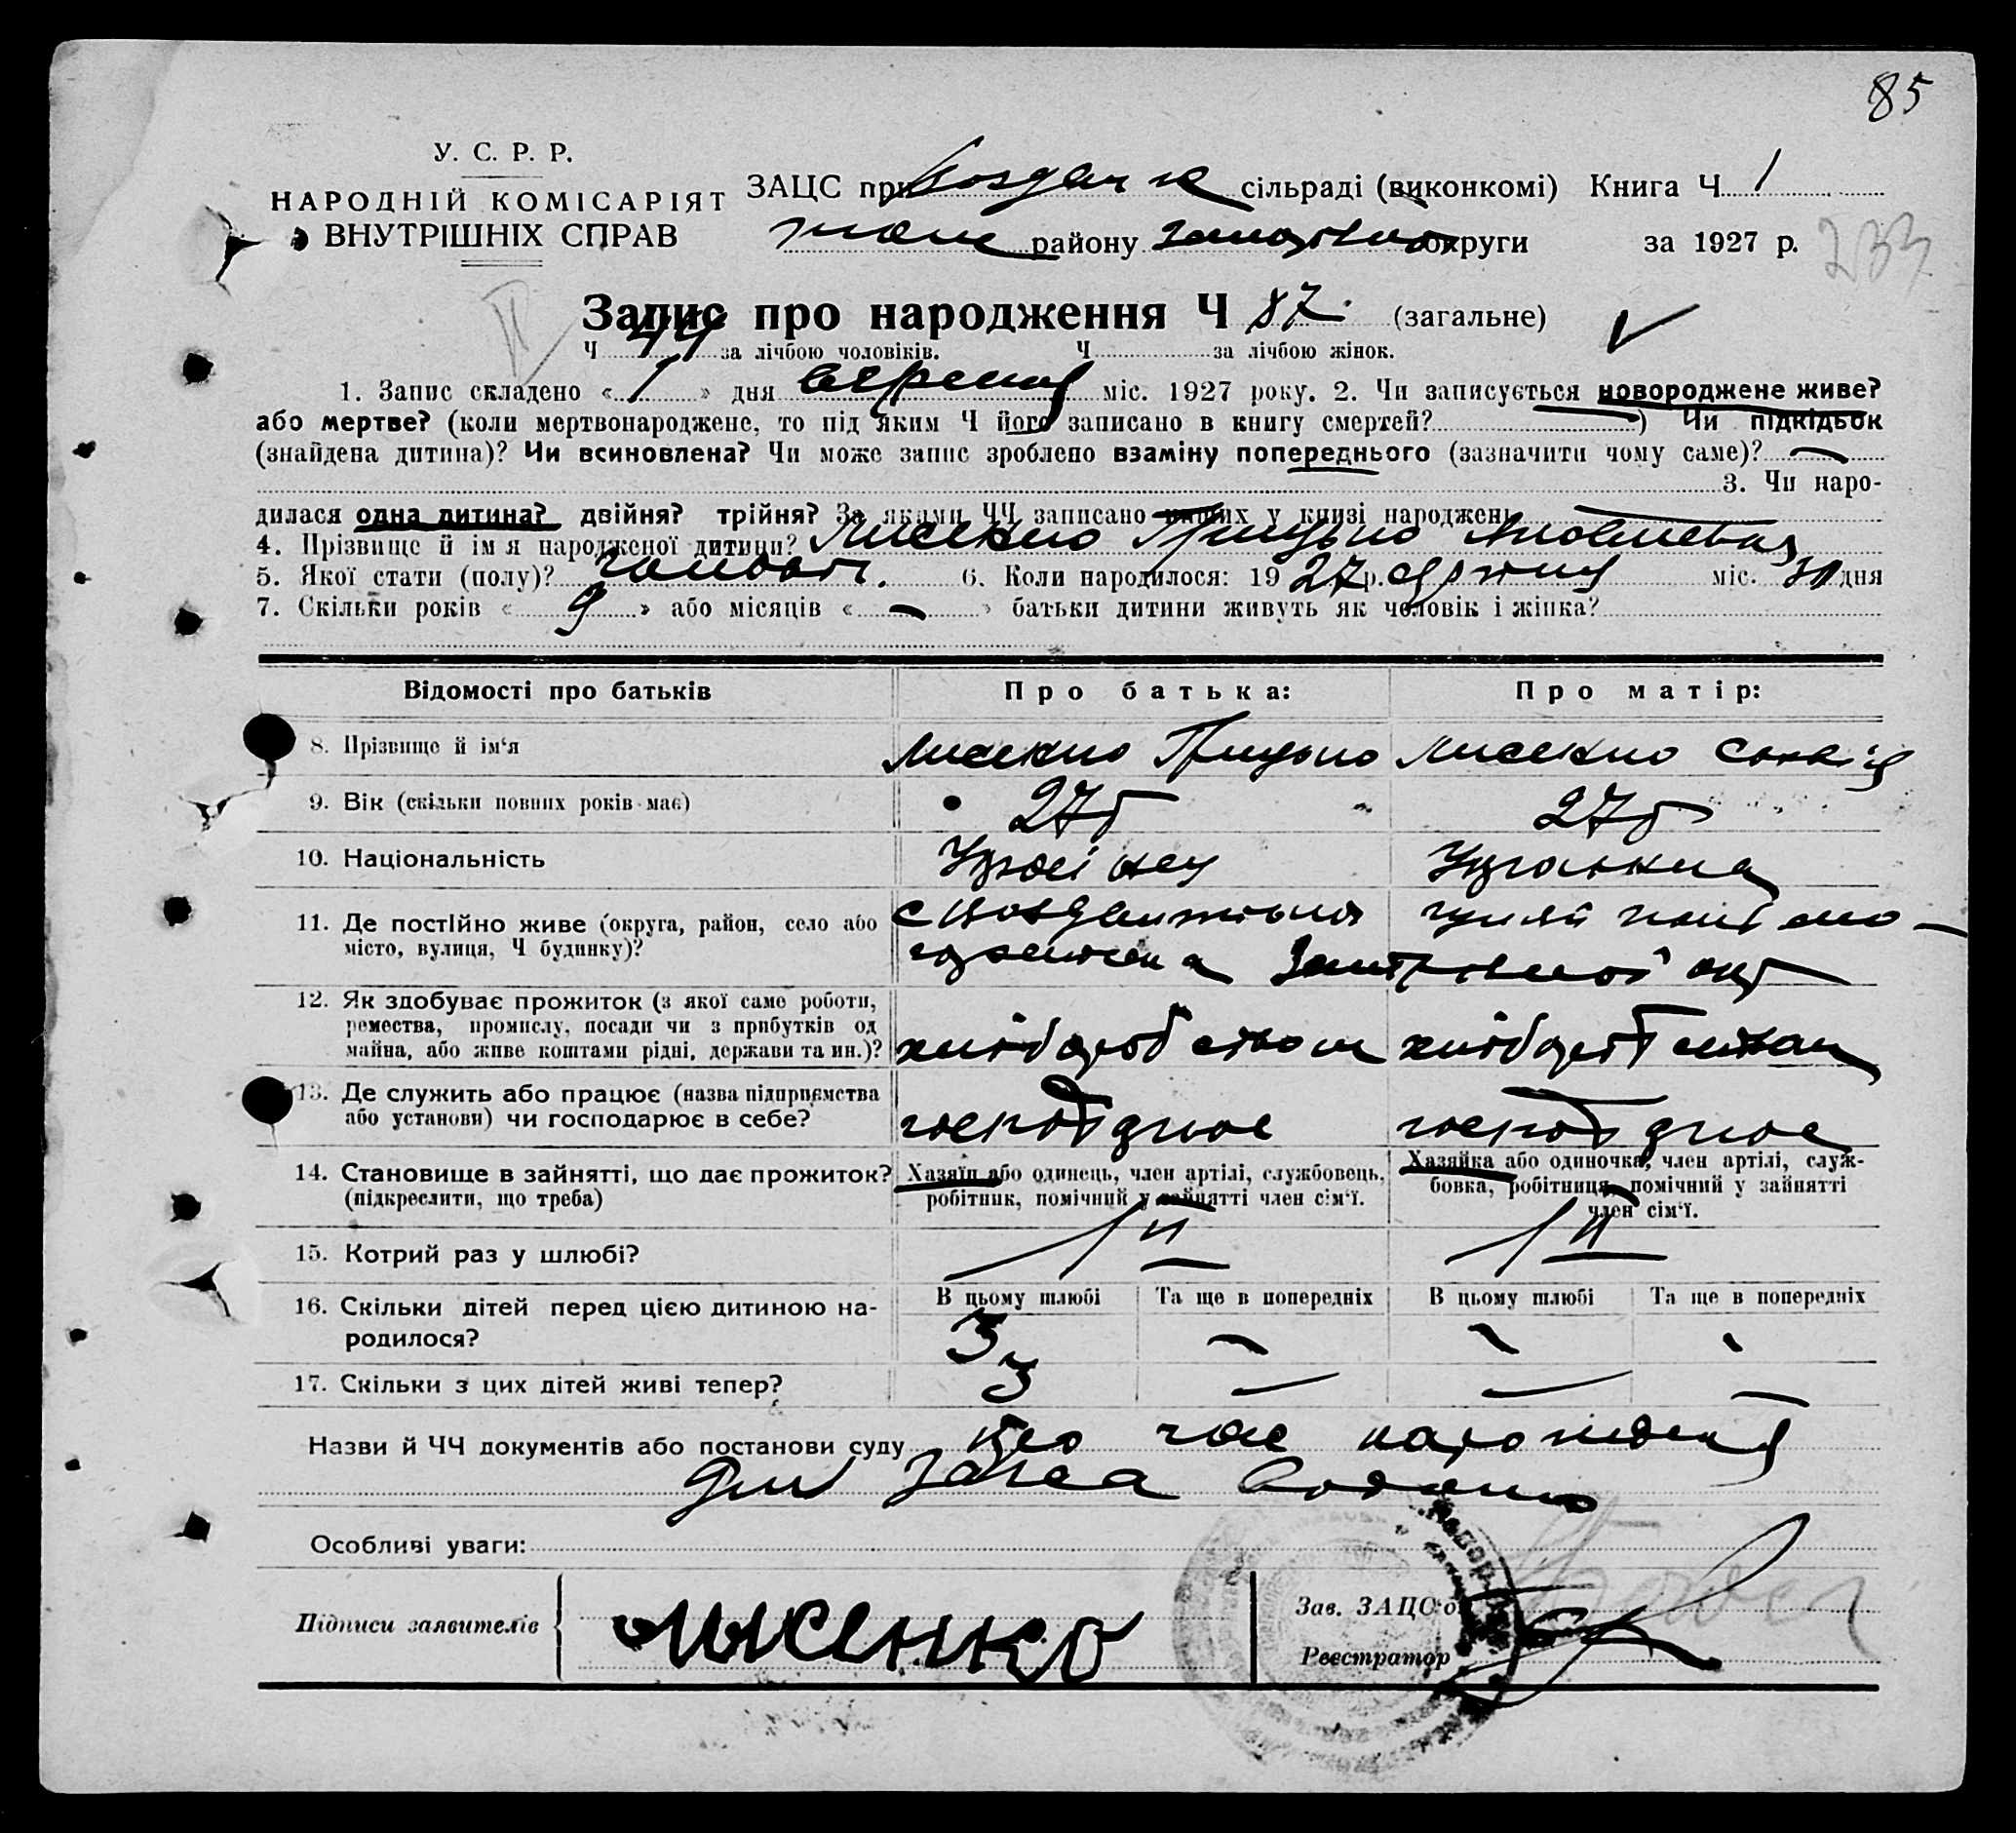 85
У. С. Р. Р.
НАРОДНІЙ КОМІСАРІЯТ
ВНУТРІШНІХ СПРАВ
ЗАЦС при сільраді (виконкомі) Книга Ч 1
району округи за 1927 р. 233
Запис про народження Ч 87. (загальне)
Ч 44 за лічбою чоловіків. Ч за лічбою жінок.
1. Запис складено « 1 » дня вересня міс. 1927 року. 2. Чи записується новороджене живе?
або мертве? (коли мертвонароджене, то під яким Ч його записано в книгу смертей? —) Чи підкідьок
(знайдена дитина)? Чи всиновлена? Чи може запис зроблено взаміну попереднього (зазначити чому саме)? —
3. Чи наро-
дилася одна дитина? двійня? трійня? За якими ЧЧ записано инших у книзі народжень
4. Прізвище й імя народженої дитини? Лисенко Грицько
5. Якої стати (полу)? чоловіч. 6. Коли народилося: 1927 р. серпня міс. 30 дня
7. Скільки років « 9 » або місяців « — » батьки дитини живуть як чоловік і жінка?
Відомості про батьків Про батька: Про матір:
8. Прізвище й ім'я Лисенко Грицько Лисенко
9. Вік (скільки повних років має) 27 р 27 р
10. Національність Українец Українка
11. Де постійно живе (округа, район, село або
місто, вулиця, Ч будинку)?
12. Як здобуває прожиток (з якої саме роботи,
ремества, промислу, посади чи з прибутків од
майна, або живе коштами рідні, держави та ин.)? хліборобством хліборобством
13. Де служить або працює (назва підприємства
або установи) чи господарює в себе?
14. Становище в зайнятті, що дає прожиток?
(підкреслити, що треба)
Хазяїн або одинець, член артілі, службовець,
робітник, помічний у зайнятті член сім'ї.
Хазяйка або одиночка, член артілі, служ-
бовка, робітниця, помічний у зайнятті
член сім'ї.
15. Котрий раз у шлюбі?
16. Скільки дітей перед цією дитиною на-
родилося?
В цьому шлюбі Та ще в попередніх В цьому шлюбі Та ще в попередніх
3 — — —
17. Скільки з цих дітей живі тепер? 3 — — —
Назви й ЧЧ документів або постанови суду про час народження
Особливі уваги:
Підписи заявителів Лысенко
Зав. ЗАЦС'ом
Реєстратор